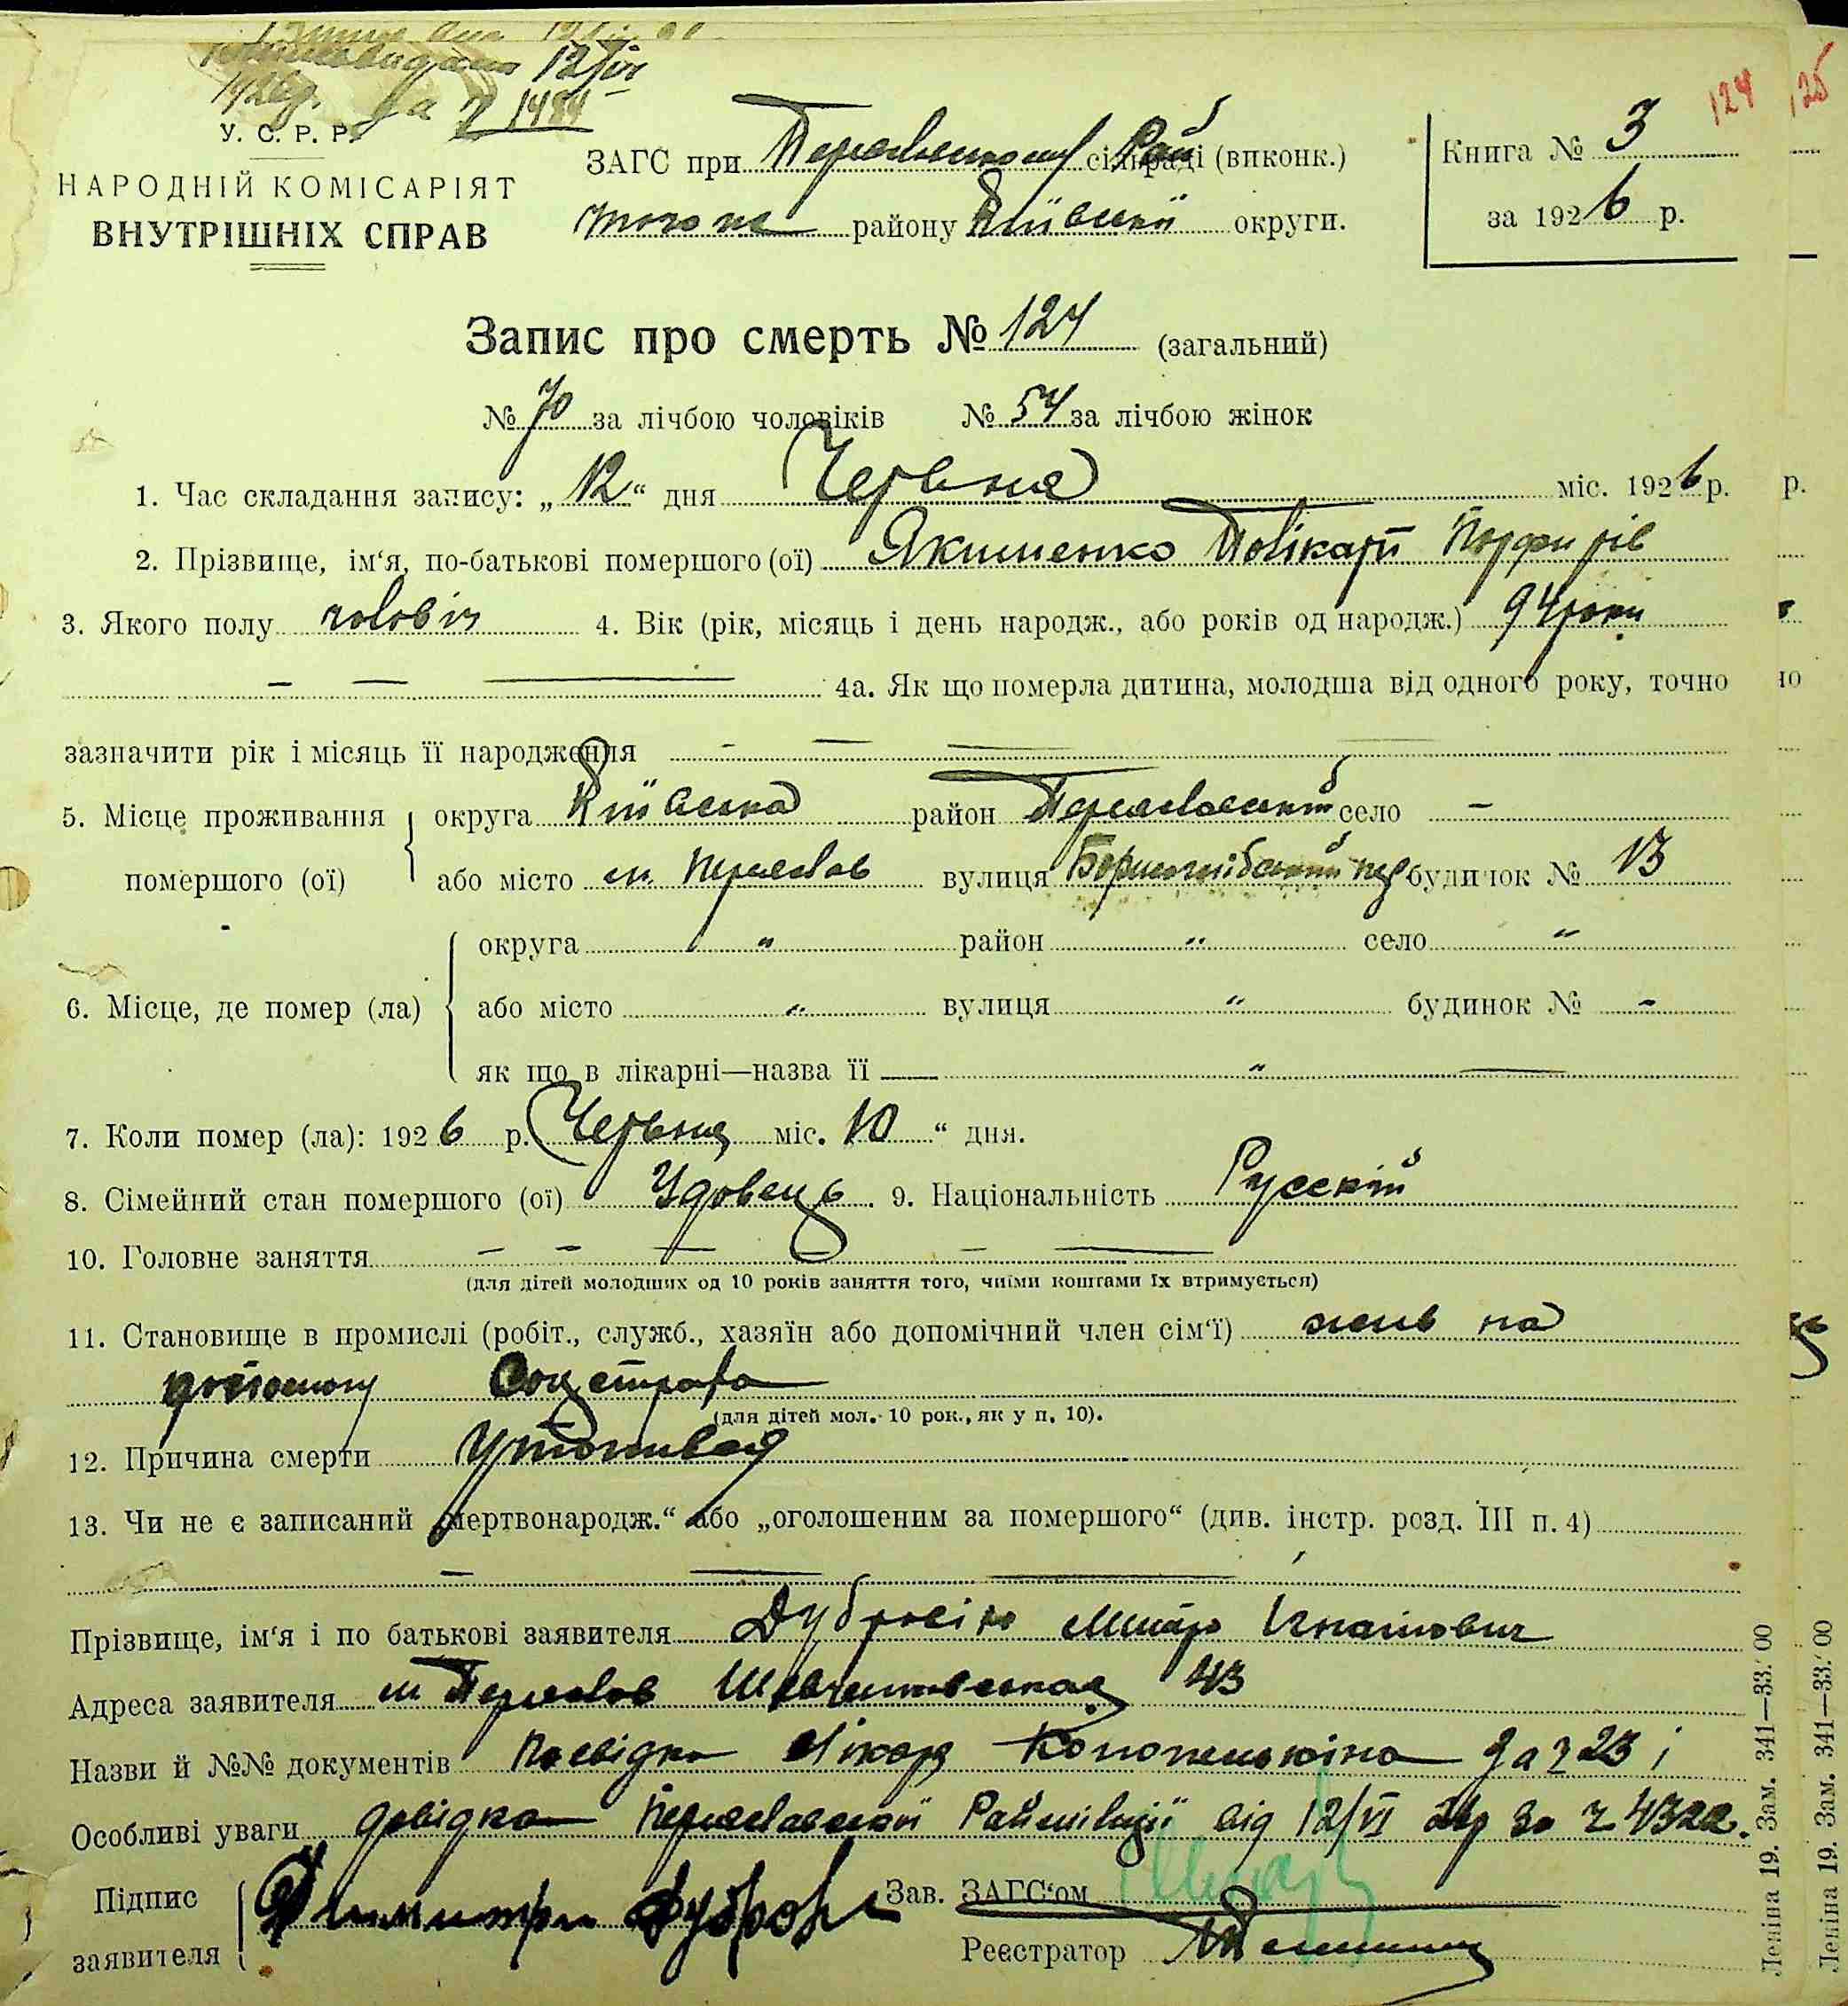 12/VI
1926р. за № 1484
У. С. Р. Р.
НАРОДНІЙ КОМІСАРІЯТ
ВНУТРІШНІХ СПРАВ
ЗАГС при Переяславському Рай сільраді (виконк.)
того ж району Київської округи.
Книга № 3
за 1926 р.
124 125
Запис про смерть № 124 (загальний)
№ 70 за лічбою чоловіків № 54 за лічбою жінок
1. Час складання запису: „12“ дня Червня міс. 1926 р.
2. Прізвище, ім‘я, по-батькові помершого (ої) Якименко Полікарп Порфирів
3. Якого полу чоловіч 4. Вік (рік, місяць і день народж., або років од народж.) 94 роки
4а. Як що померла дитина, молодша від одного року, точно
зазначити рік і місяць її народження
5. Місце проживання помершого (ої) округа Київська район Переяславський село –
або місто м. Переяслав вулиця пер будинок № 13
6. Місце, де помер (ла) округа " район " село "
або місто " вулиця " будинок № -
як що в лікарні—назва її — "
7. Коли помер (ла): 1926 р. Червня міс. 10 “ дня.
8. Сімейний стан помершого (ої) Удовець. 9. Національність Русскій
10. Головне заняття
(для дітей молодших од 10 років заняття того, чиїми коштами їх втримується)
11. Становище в промислі (робіт., служб., хазяїн або допомічний член сім‘ї) жив на
допомогу Соцстраха
(для дітей мол. 10 рок., як у п. 10).
12. Причина смерти Утопився
13. Чи не є записаний „мертвонародж.“ або „оголошеним за помершого“ (див. інстр. розд. III п. 4)
Прізвище, ім‘я і по батькові заявителя Дубровін Митро Ігнатович
Адреса заявителя м Переяслав Шевченковская 43
Назви й №№ документів Посвідка лікаря за 2 23 і
Особливі уваги довідка Переяславської Райміліції від 12/VI за 2 4322.
Підпис заявителя Димитри Дубров
Зав. ЗАГС‘ом
Реєстратор
Леніна 19. Зам. 341—33.'00
Леніна 19. Зам. 341—33.'00